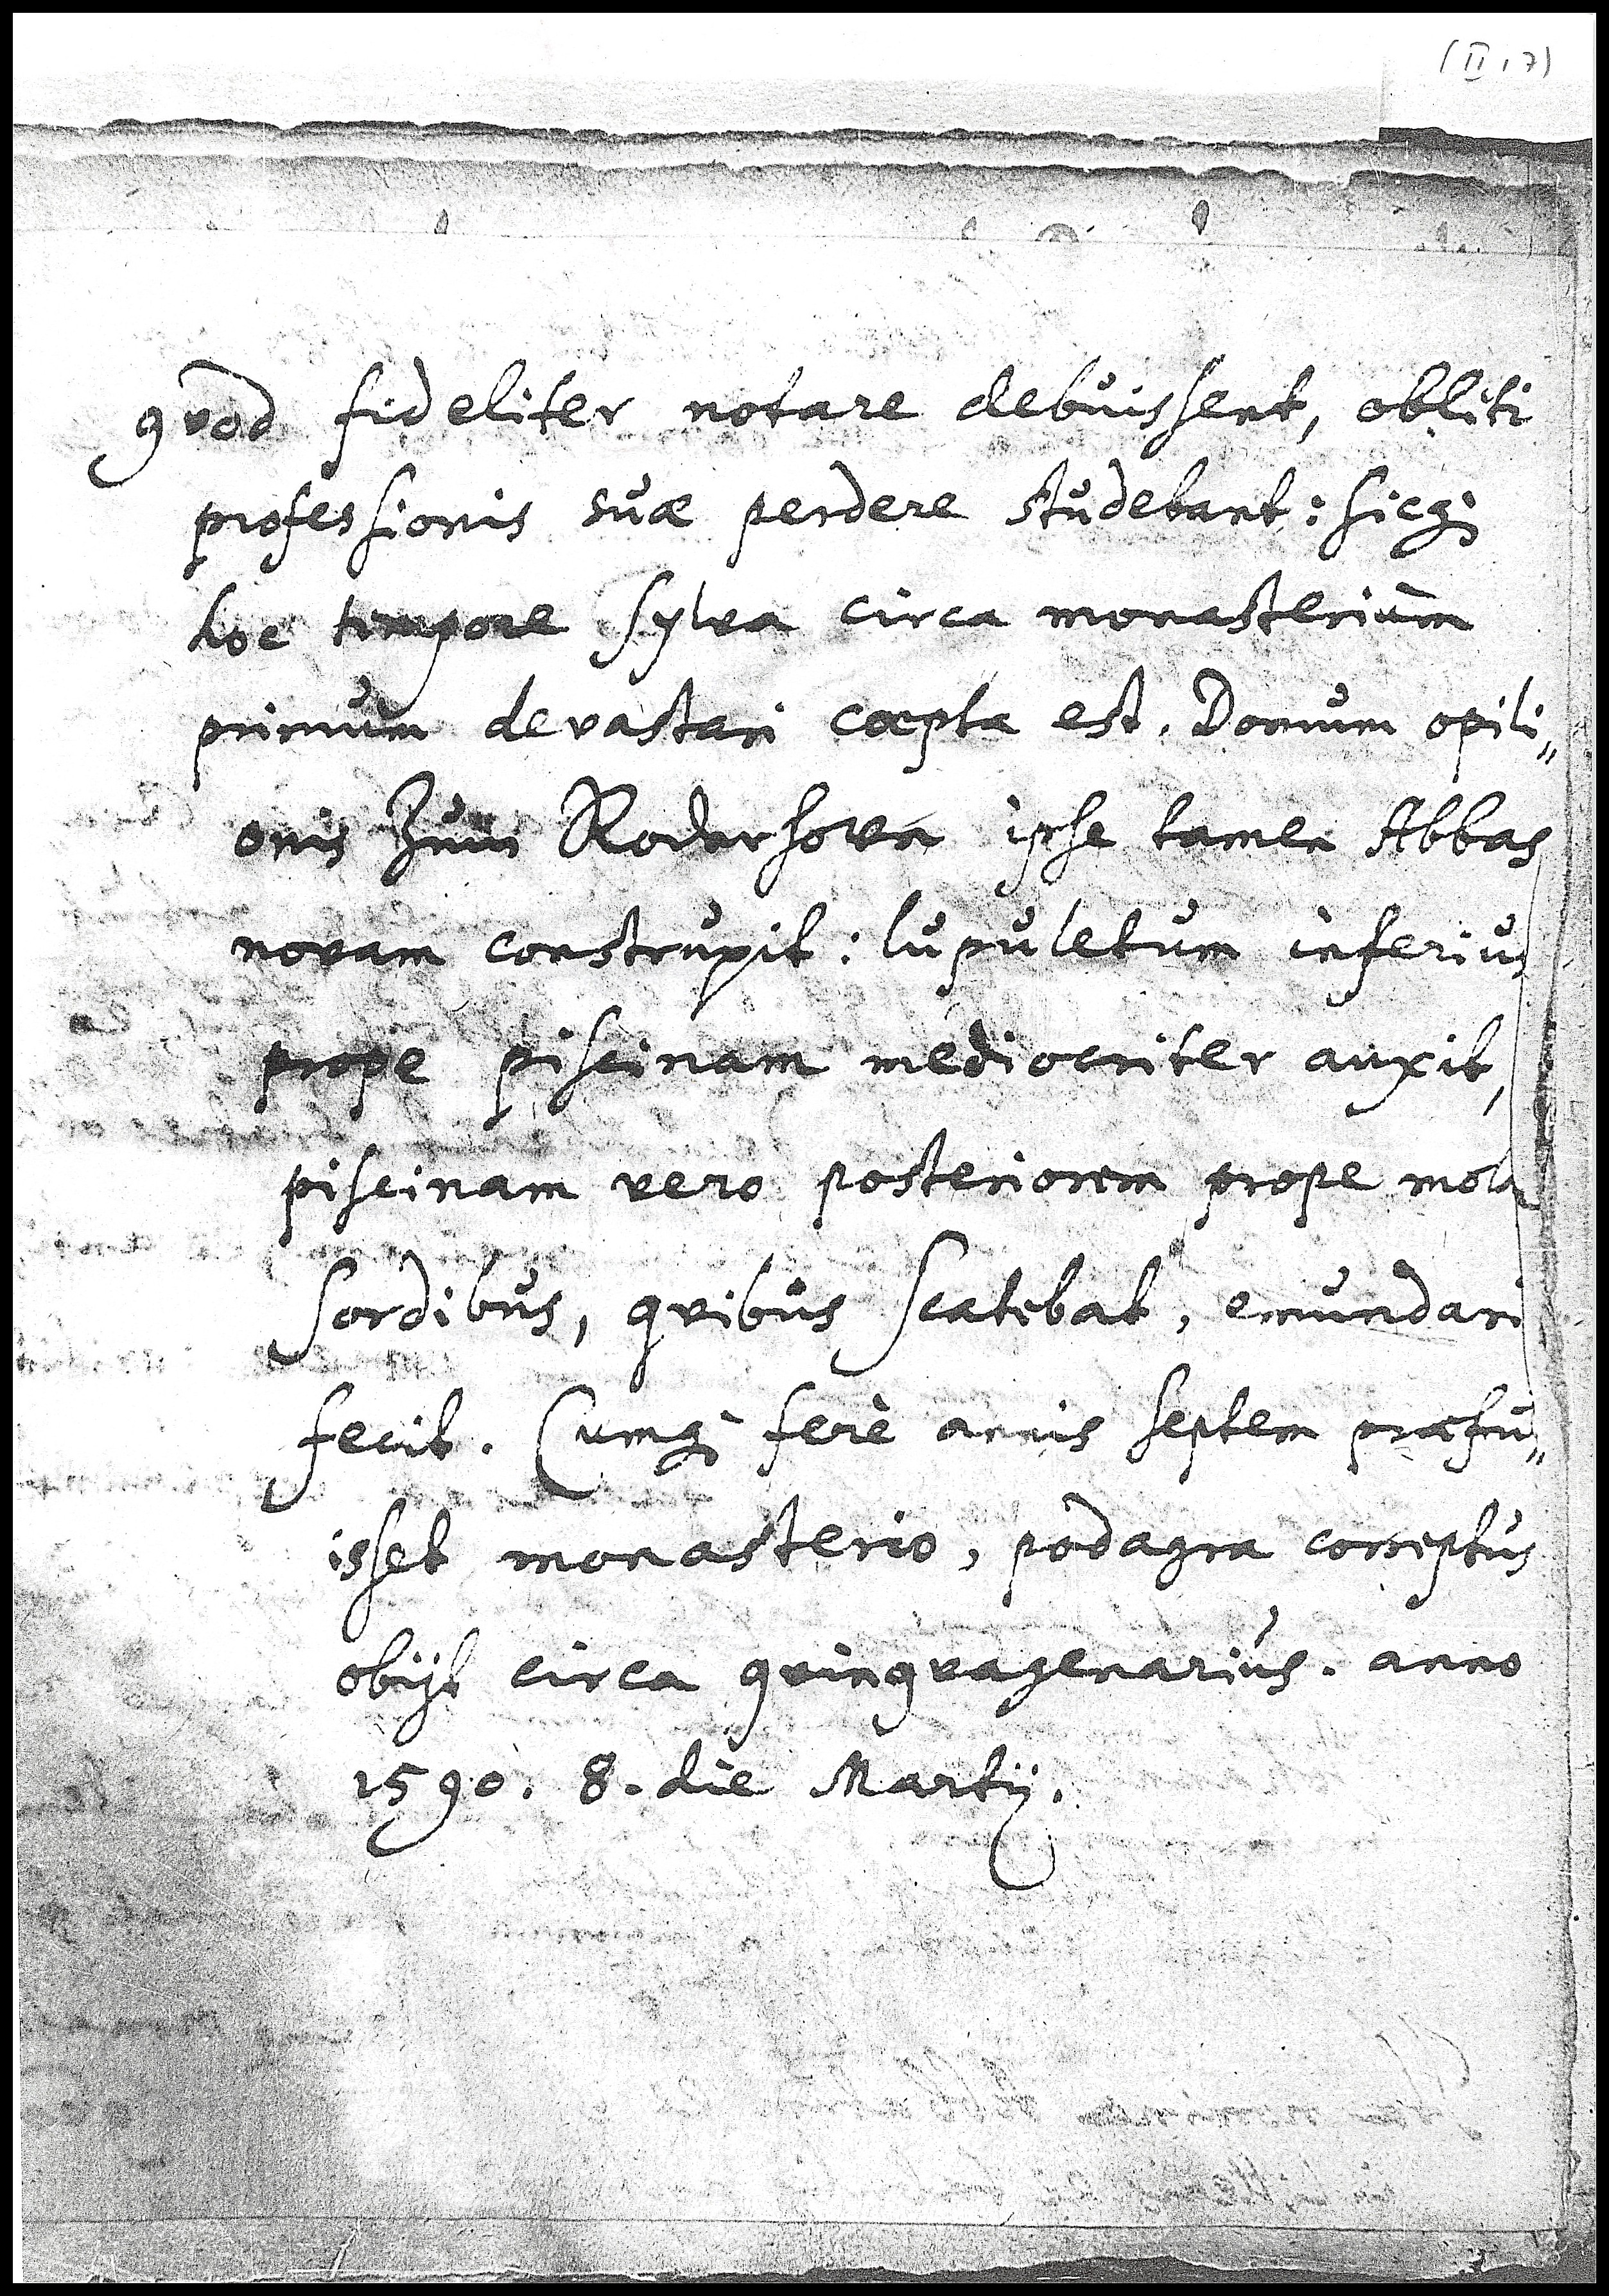 (II,7)
qvod fideliter notare debuissent, obliti
professionis suæ perdere studebant: sicq;
hoc tempore sylva circa monasterium
primum devastari cœpta est. Domum opili„
onis Zum ipse tamen Abbas
novam construxit: lupuletum inferius
prope piscinam mediocriter auxit,
piscinam vero posteriorem prope mola
sordibus, qvibus scatebat, emundari
fecit. Cumq; ferè annis septem præfu„
isset monasterio, podagra correptus
obijt circa qvinqvagenarius. anno
1590. 8. die Martij.